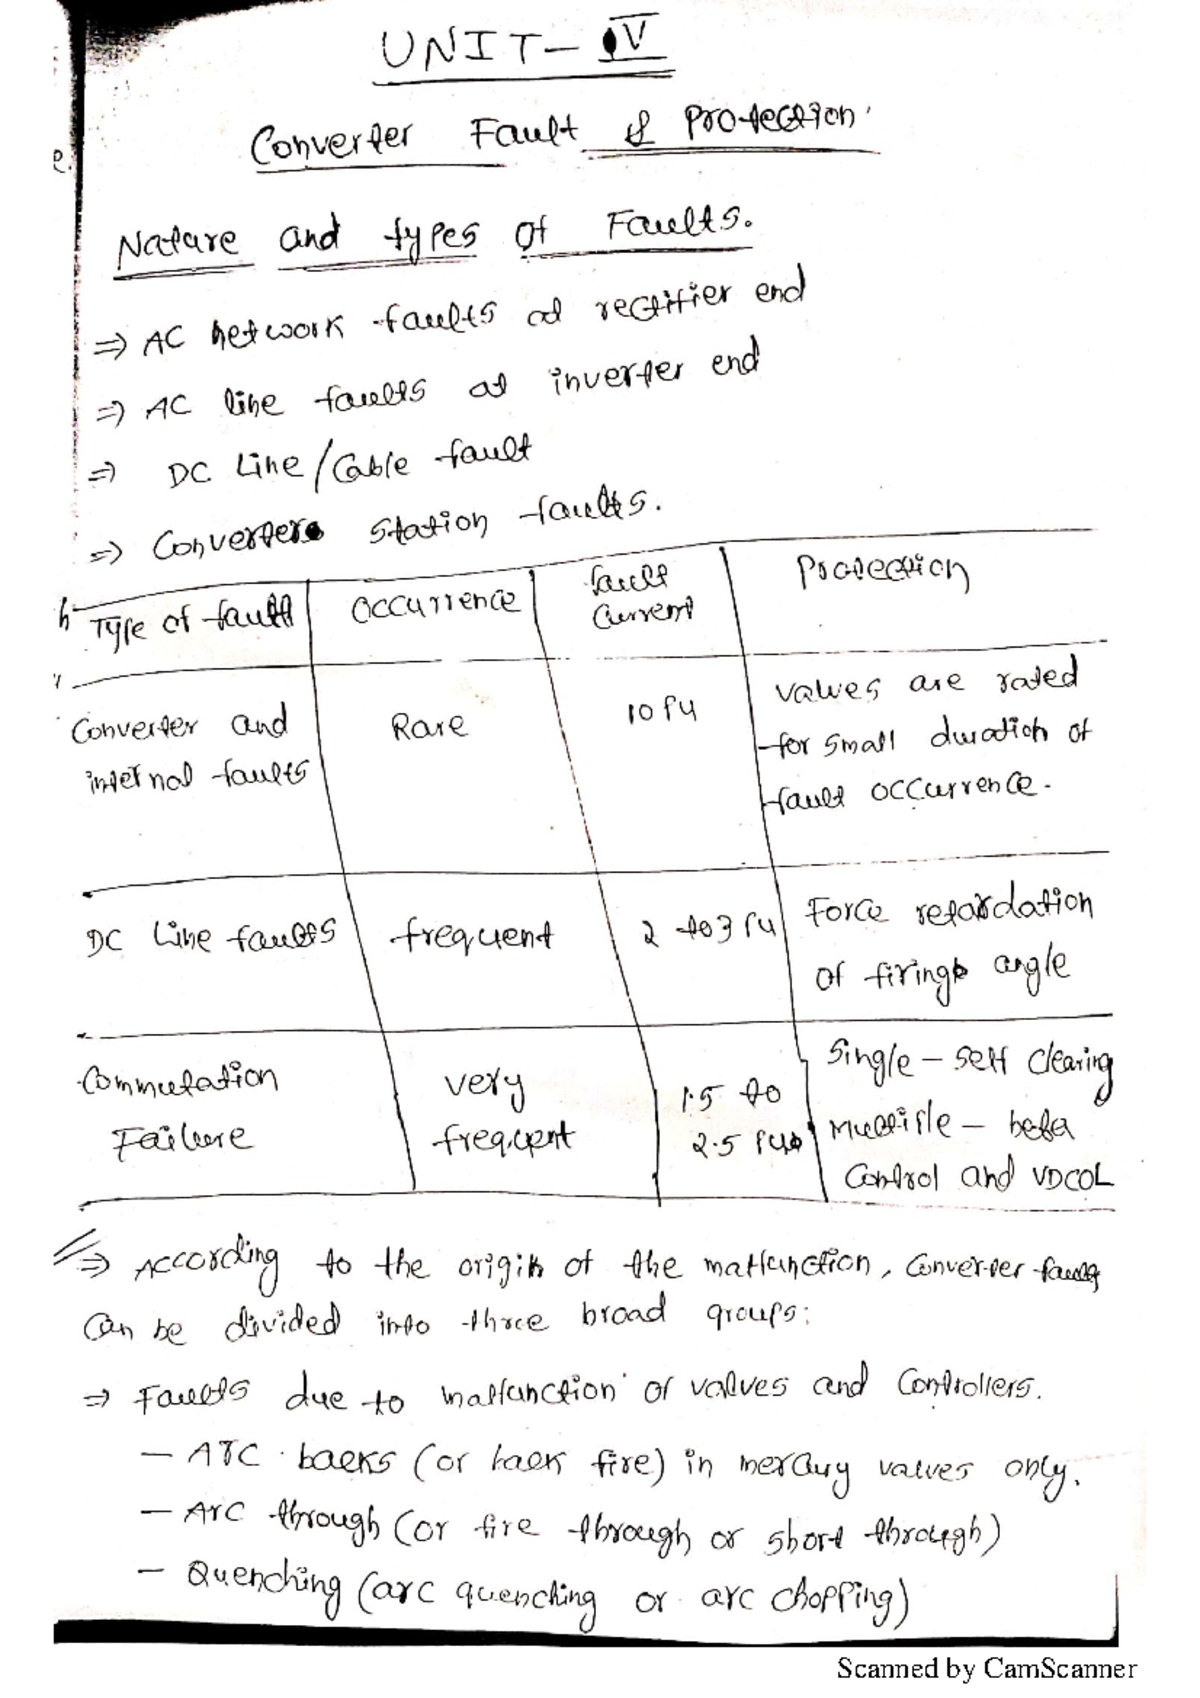 UNIT- IV
Converter Fault & Protection.
e.
Nature and types of Faults.
⇒ AC network faults at rectifier end
⇒ AC line faults at inverter end
⇒ DC Line/Cable fault
⇒ Converter Station faults.
Type of fault Occurrence fault Current Protection
Converter and internal faults Rare 10 PU valves are rated for small duration of fault occurrence.
DC Line faults frequent 2 to 3 PU Force retardation of firing angle
Commutation Failure very frequent 1.5 to 2.5 PU Single - self clearing Multiple - beta Control and VDCOL
⇒ According to the origin of the malfunction, Converter faults
Can be divided into three broad groups:
⇒ Faults due to malfunction of valves and Controllers.
- Arc backs (or back fire) in mercury valves only.
- Arc through (or fire through or short through)
- Quenching (arc quenching or arc chopping)
Scanned by CamScanner